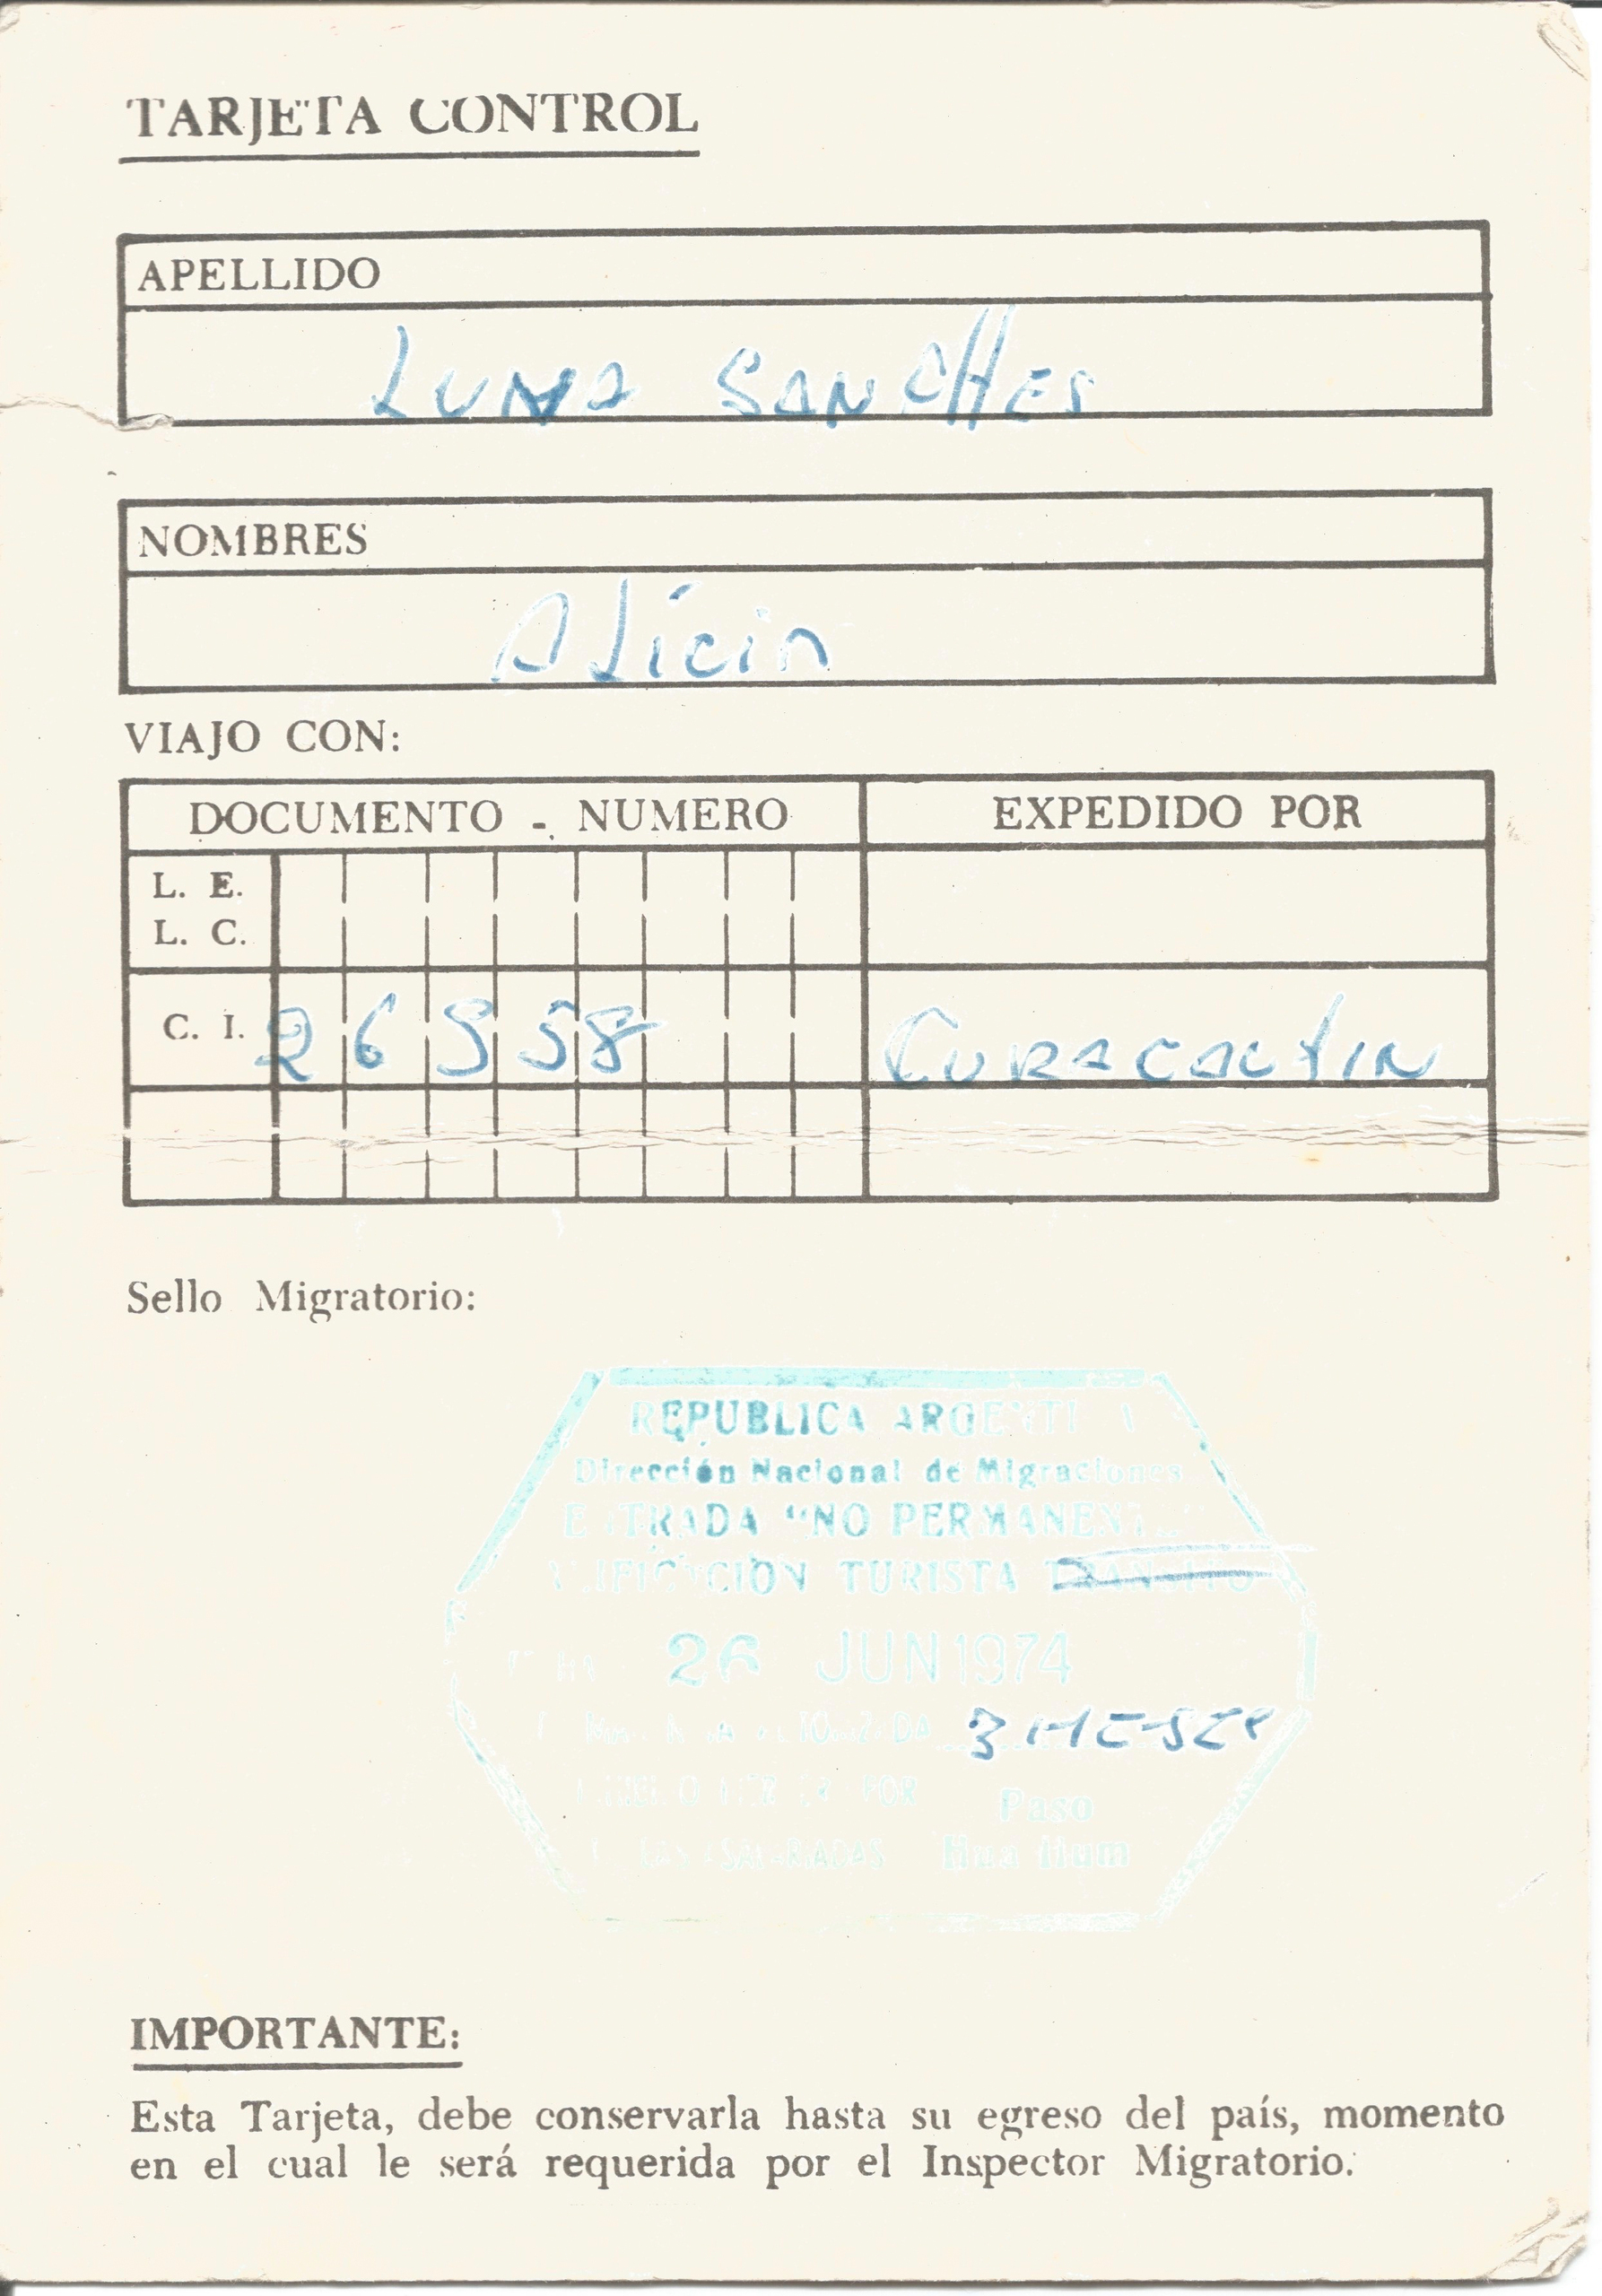 TARJETA CONTROL
APELLIDO
LUNA SANCHES
NOMBRES
ALicia
VIAJO CON:
DOCUMENTO - NUMERO EXPEDIDO POR
L. E.
L. C.
C. I. 26958 CURACAUTIN
Sello Migratorio:
REPUBLICA ARGENTINA
Dirección Nacional de Migraciones
ENTRADA "NO PERMANENTE"
TURISTA TRANSITO
26 JUN 1974
3 MESES
POR Paso
Hua Hum
IMPORTANTE:
Esta Tarjeta, debe conservarla hasta su egreso del país, momento
en el cual le será requerida por el Inspector Migratorio.